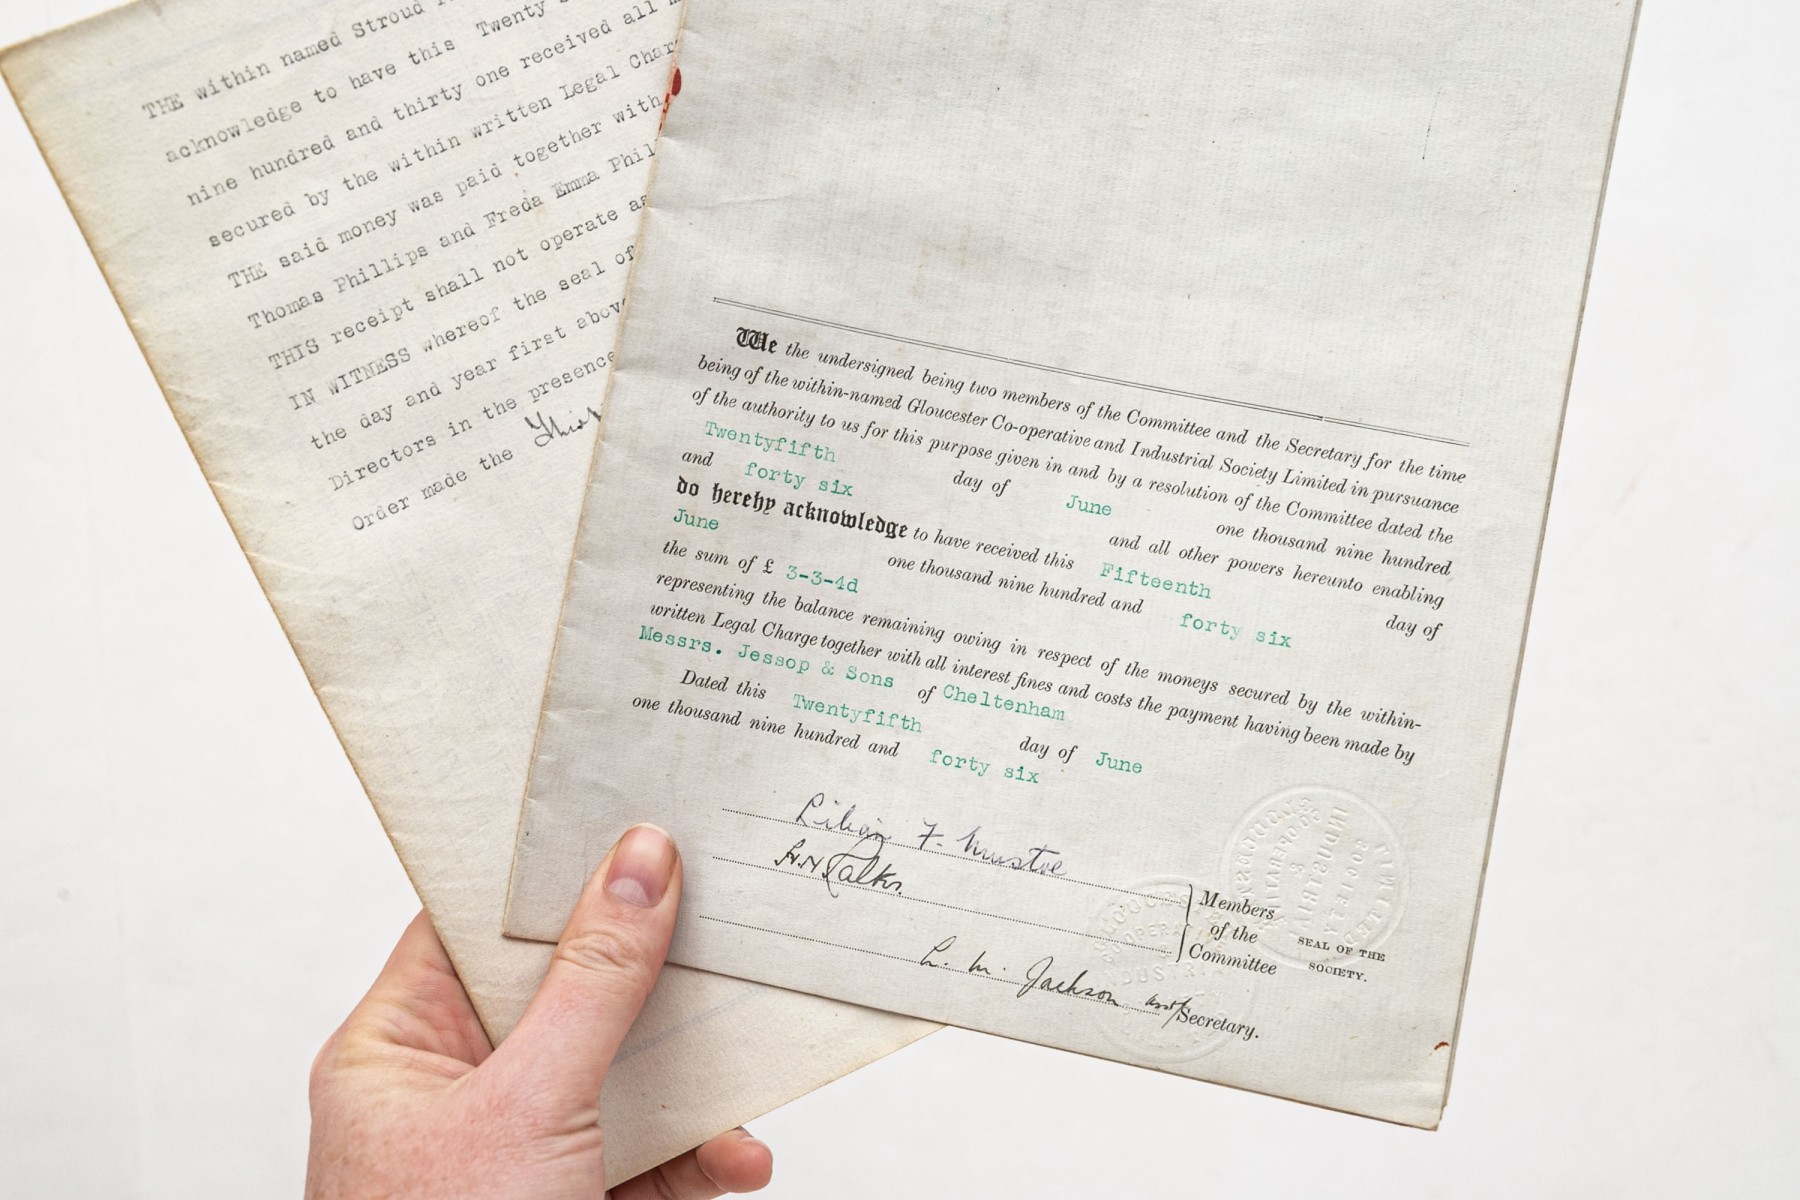 THE within named Stroud
acknowledge to have this Twenty
nine hundred and thirty one received all
secured by the within written Legal Char
THE said money was paid together with
Thomas Phillips and Freda Emma Phil
THIS receipt shall not operate as
IN WITNESS whereof the seal of
the day and year first abov
Directors in the presence
Order made the
We the undersigned being two members of the Committee and the Secretary for the time
being of the within-named Gloucester Co-operative and Industrial Society Limited in pursuance
of the authority to us for this purpose given in and by a resolution of the Committee dated the
Twentyfifth day of June one thousand nine hundred
and forty six and all other powers hereunto enabling
do hereby acknowledge to have received this Fifteenth day of
June one thousand nine hundred and forty six
the sum of £ 3-3-4d
representing the balance remaining owing in respect of the moneys secured by the within-
written Legal Charge together with all interest fines and costs the payment having been made by
Messrs. Jessop & Sons of Cheltenham
Dated this Twentyfifth day of June
one thousand nine hundred and forty six
Lilian F.
Members
of the
Committee
SEAL OF THE
SOCIETY.
L. M. Jackson asst/Secretary.